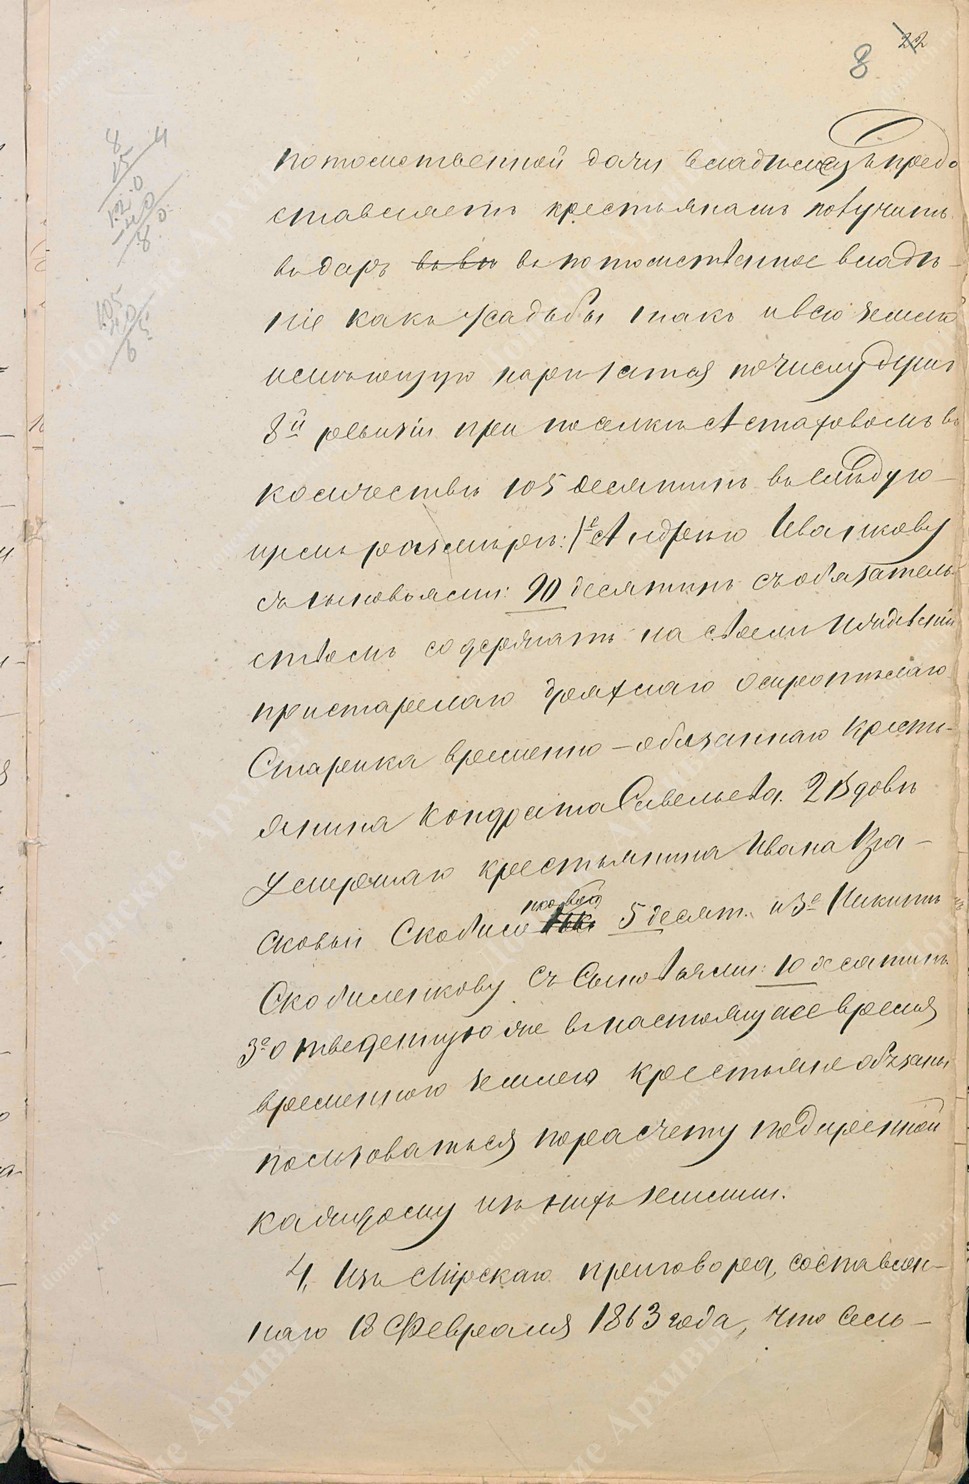 8 22
потомственной дачи владелецъ предо
ставляетъ крестьянамъ получить
въ даръ въ вѣ въ потомственное владѣ-
ніе какъ усадьбы такъ и всю землю
имѣющую нарѣзатся по числу душъ
8й ревизіи при поселкѣ Астаховомъ въ
количествѣ 105 десятинъ въ слѣдую-
щемъ размѣрѣ: 1е Андрею Ивашкову
съ сыновьями: 90 десятинъ съ обязатель-
ствомъ содержать на своемъ иждивеніи
пристарелаго дряхлаго осиротѣлаго
Старика временно-обязаннаго крестъ-
янина Кондрата Савельева. 2 Вдовѣ
умершаго крестьянина Ивана
Скобило 5 десят. и 3е Никитѣ
Скобиленкову съ Сыновьями: 10 десятинъ
3е отведенную же въ настоящее время
временною землею крестьяне обязаны
пользоваться по расчету подаренной
каждому изъ нихъ земли.
4, Изъ Мірскаго приговора, составлен-
наго 18 Февраля 1863 года, что сель-
8
15
120
80
105